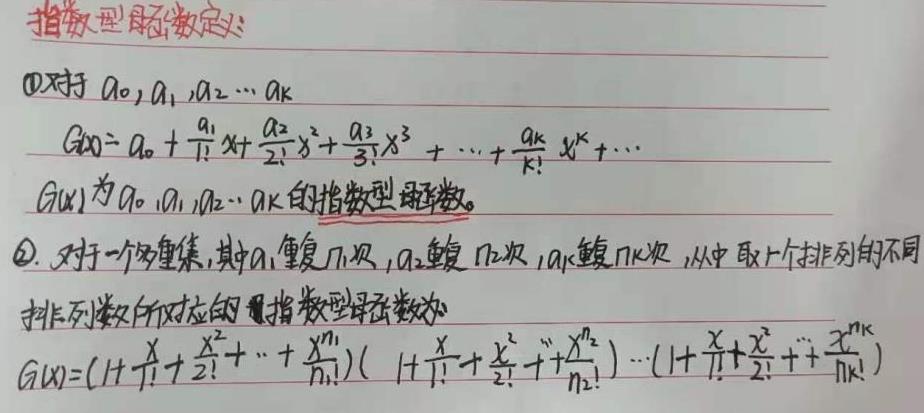 指数型母函数定义:
①对于 a₀, a₁, a₂ … aₖ
G(x) = a₀ + \frac{a₁}{1!} x + \frac{a₂}{2!} x² + \frac{a₃}{3!} x³ + … + \frac{aₖ}{k!} xᵏ + …
G(x)为a₀, a₁, a₂ … aₖ的指数型母函数。
②. 对于一个多重集,其中a₁重复n₁次,a₂重复n₂次,aₖ重复nₖ次,从中取r个排列的不同
排列数所对应的指数型母函数为:
G(x) = (1 + \frac{x}{1!} + \frac{x²}{2!} + … + \frac{x^{n₁}}{n₁!}) (1 + \frac{x}{1!} + \frac{x²}{2!} + … + \frac{x^{n₂}}{n₂!}) … (1 + \frac{x}{1!} + \frac{x²}{2!} + … + \frac{x^{nₖ}}{nₖ!})